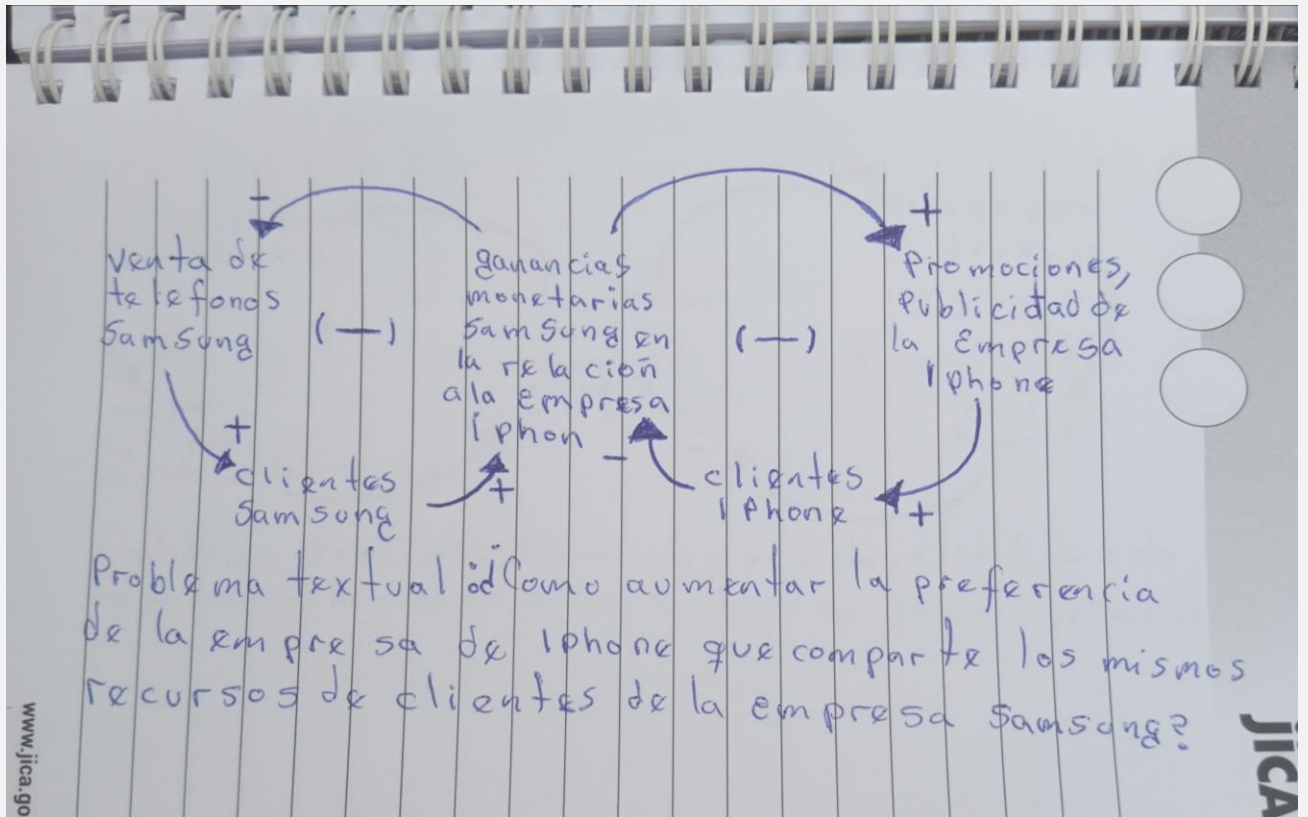 -
+
venta de
telefonos
Samsung
(—)
ganancias
monetarias
Samsung en
la relación
a la empresa
iphon
(—)
Promociones,
Publicidad de
la Empresa
Iphone
+
clientes
Samsung
+
-
clientes
IPhone
+
Problema textual: ¿Como aumentar la preferencia
de la empresa de Iphone que comparte los mismos
recursos de clientes de la empresa Samsung?
www.jica.go
jICA